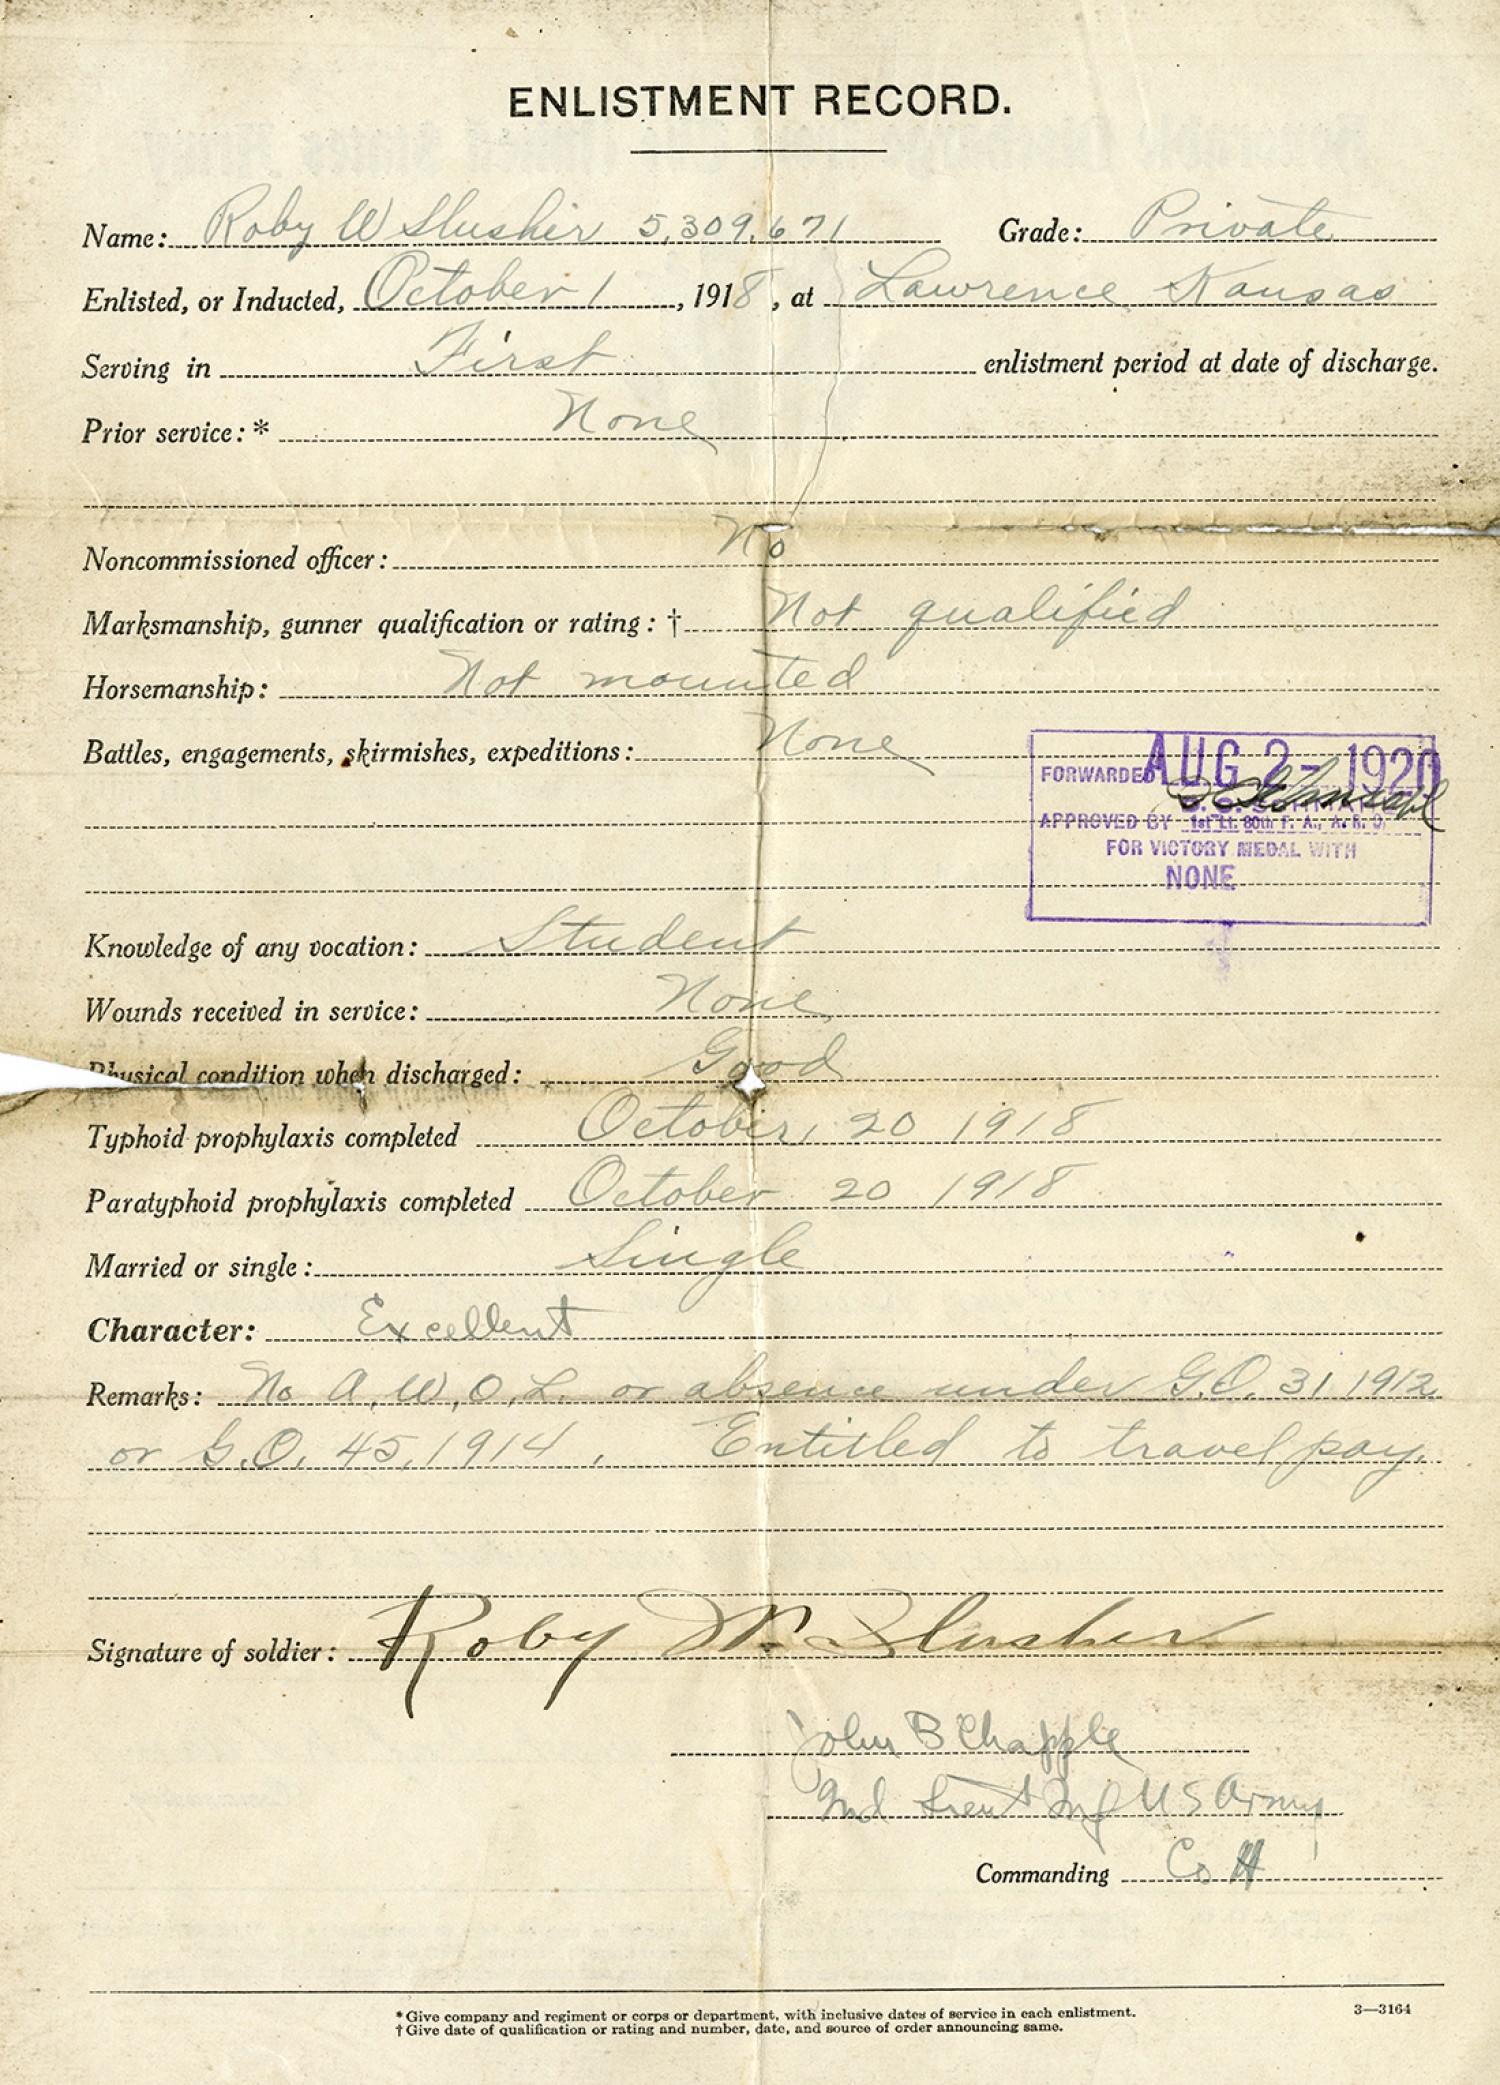 ENLISTMENT RECORD.
Name: Roby W Slusher 5,309,671 Grade: Private
Enlisted, or Inducted, October 1, 1918, at Lawrence Kansas
Serving in First enlistment period at date of discharge.
Prior service: * None
Noncommissioned officer: No
Marksmanship, gunner qualification or rating: † Not qualified
Horsemanship: Not mounted
Battles, engagements, skirmishes, expeditions: None
FORWARDED AUG 2 - 1920
APPROVED BY 1st Lt. 80th F. A., A. R. O.
FOR VICTORY MEDAL WITH
NONE
Knowledge of any vocation: Student
Wounds received in service: None
Physical condition when discharged: Good
Typhoid prophylaxis completed October, 20 1918
Paratyphoid prophylaxis completed October 20 1918
Married or single: Single
Character: Excellent
Remarks: No A.W.O.L. or absence under G.O. 31 1912
or G.O. 45, 1914. Entitled to travel pay.
Signature of soldier: Roby W. Slusher
John B Chapple
2nd Lieut Inf U S Army
Commanding Co H
* Give company and regiment or corps or department, with inclusive dates of service in each enlistment.
† Give date of qualification or rating and number, date, and source of order announcing same.
3—3164